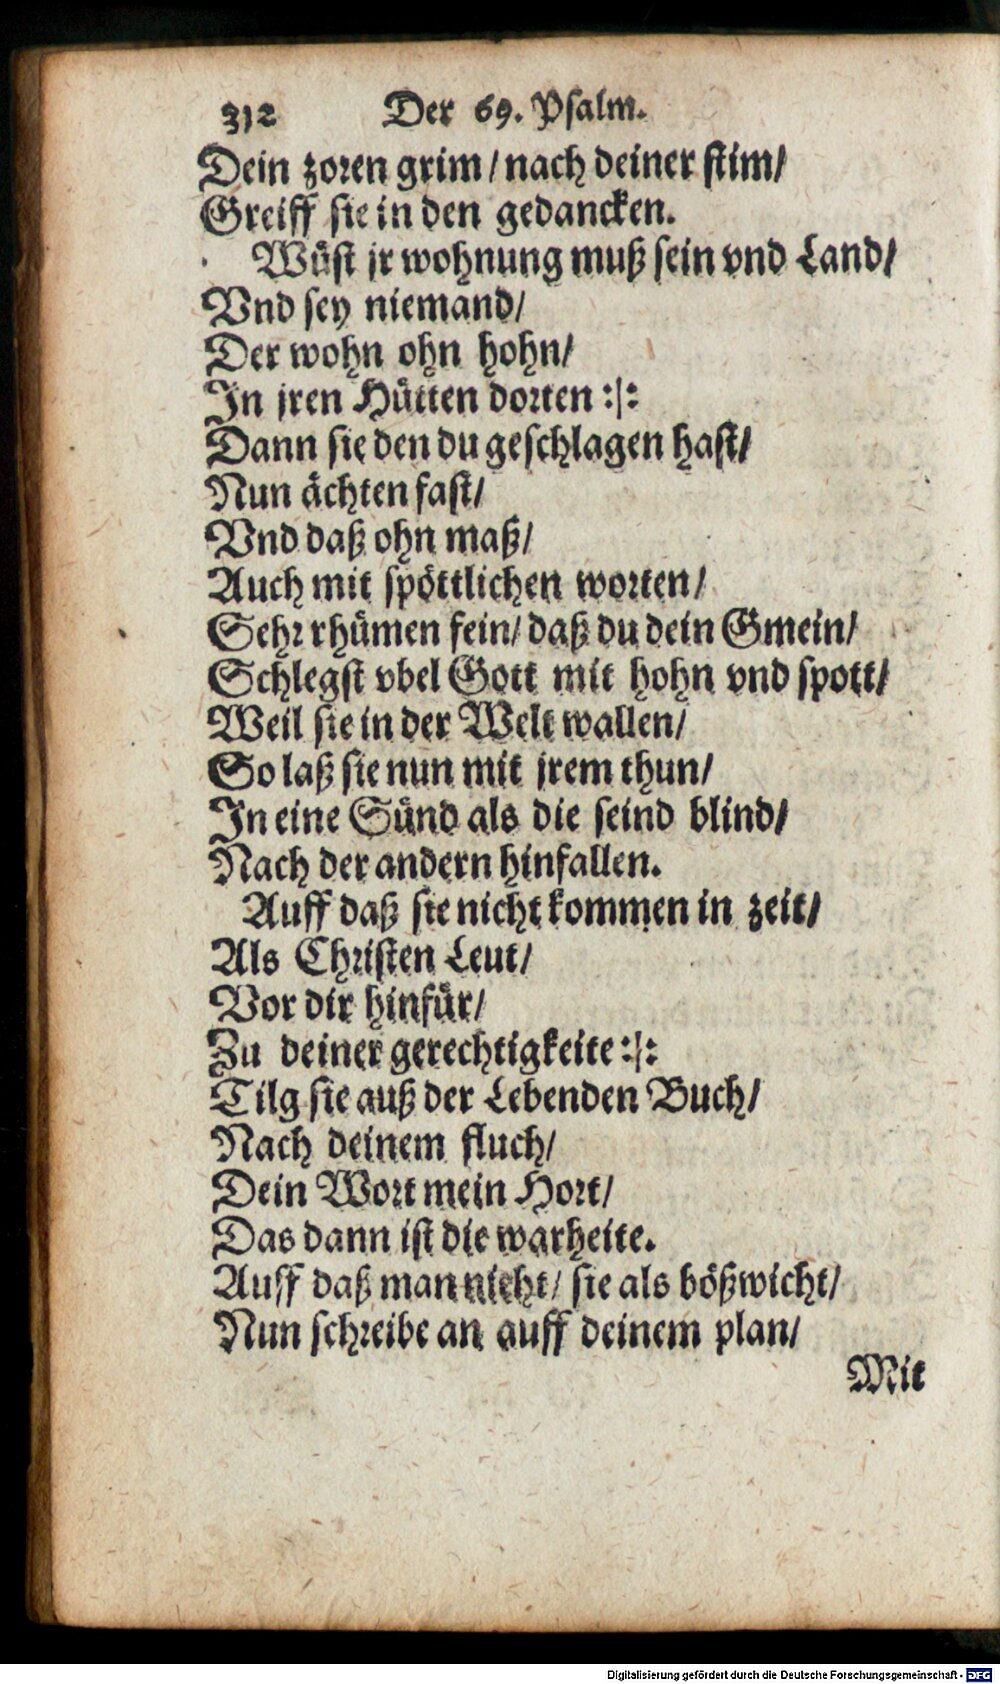 312 Der 69. Psalm.
Dein zoren grim / nach deiner stim/
Greiff sie in den gedancken.
Wüst jr wohnung muß sein vnd Land/
Vnd sey niemand/
Der wohn ohn hohn/
In jren Hütten dorten :|:
Dann sie den du geschlagen hast/
Nun ächten fast/
Vnd daß ohn maß/
Auch mit spöttlichen worten/
Sehr rhümen fein/ daß du dein Gmein/
Schlegst vbel Gott mit hohn vnd spott/
Weil sie in der Welt wallen/
So laß sie nun mit jrem thun/
In eine Sünd als die seind blind/
Nach der andern hinfallen.
Auff daß sie nicht kommen in zeit/
Als Christen Leut/
Vor dir hinfür/
Zu deiner gerechtigkeite :|:
Tilg sie auß der Lebenden Buch/
Nach deinem fluch/
Dein Wort mein Hort/
Das dann ist die warheite.
Auff daß man nicht/ sie als bößwicht/
Nun schreibe an auff deinem plan/
Mit
Digitalisierung gefördert durch die Deutsche Forschungsgemeinschaft - DFG